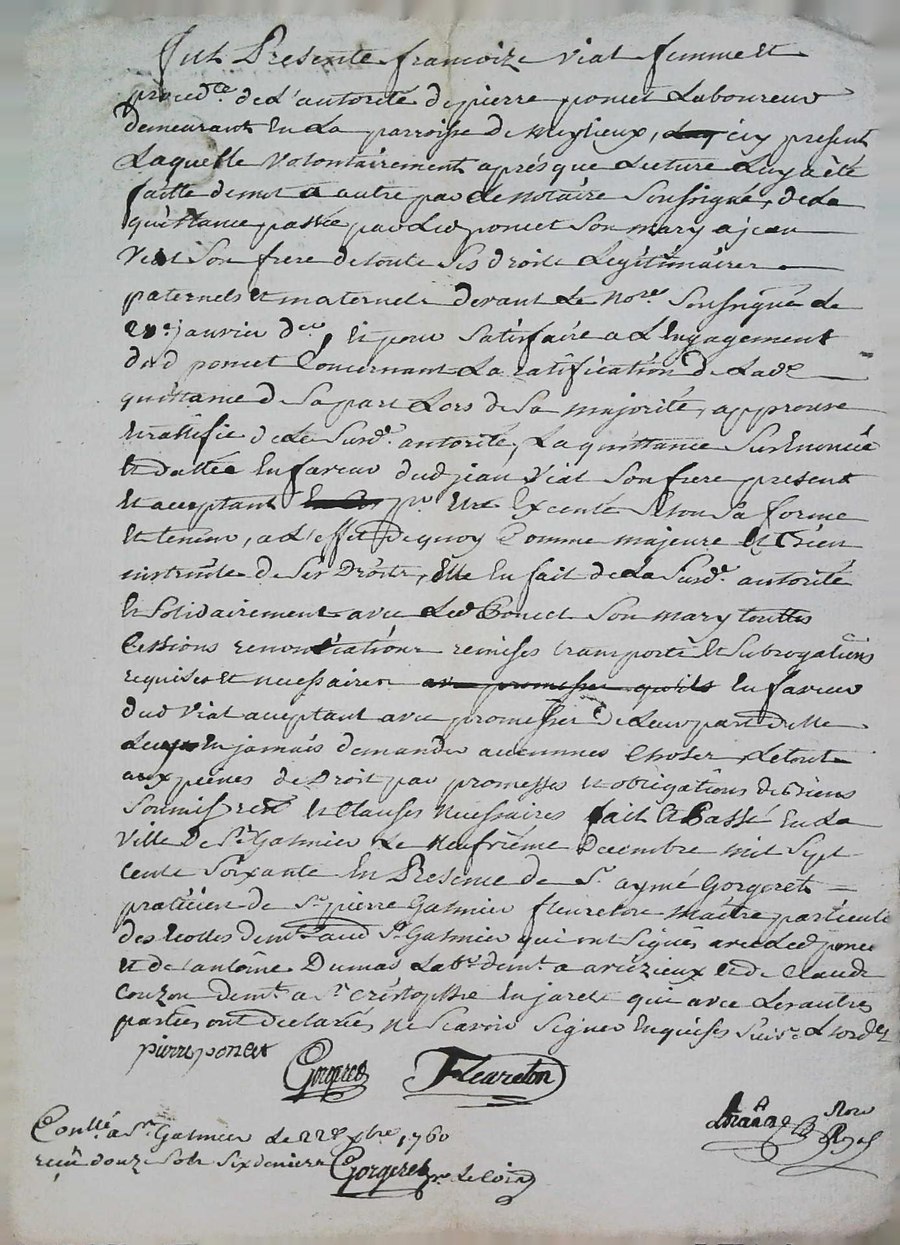 fut Presente francoize viat femme et
proced.te de L'autorité de pierre poncet Laboureur
demeurant En La parroisse de meylieux, icy present
Laquelle volontairement aprés que Lecture Luy à été
faitte de mot a autre par Le notaire Soussigné, de La
quittance passée par Led poncet Son mary a jean
Viat Son frere de toute Ses droits Legitimáires
paternels et maternels devant Le No.re Soussigné Le
janvier d.er, Et pour Satisfaire a L'Engagement
dud poncet Concernant La ratification de Lad.e
quittance de Sa part Lors de Sa majorité, approuve
Et rattifie de La Susd.e autorité, La quittance Sus Enoncée
Et dattée En faveur dud jean Viat Son frere present
Et aceptant p.r Etre Executé Selon Sa forme
Et teneur, a L'effet de quoy Comme majeure Et Bien
instruitte de Ses Droits, Elle En fait de La Susd.e autorité
Et Solidairement avec Led Poncet Son mary touttes
Cessions renontiations remises transports Et Subrogations
requises et necessaires avec promesses qu'ils En faveur
dud Viat aceptant avec promesses de Leur part de Ne
En jamais demander aucunnes Choses, Le tout
aux peines de Droit par promesses et obligations de Biens
Soumis Et Clauses Necessaires fait Et Passé En La
Ville de S.t Galmier Le Neufviéme Decembre mil Sept
Cents Soixante En Presence de S.r aymé Gorgeret
praticien de S.t pierre Galmier fleureton Maitre
des Ecolles dem.t aud S.t Galmier qui ont Signés avec Led ponce
Et de antoine Dumas Lab.r dem.t a avezieux Et de Claude
Couzon dem.t a S.t Cristophle En jarets qui avec Les autres
parties ont declarés Ne Scavoir Signer Enquises Suiv.t L'ord.e
pierre poncet
Gorgeret Fleureton
Con.llé a S.t Galmier Le 22 Xbre 1760
reçu douze Sols Six deniers Gorgeret
Nore
Royal